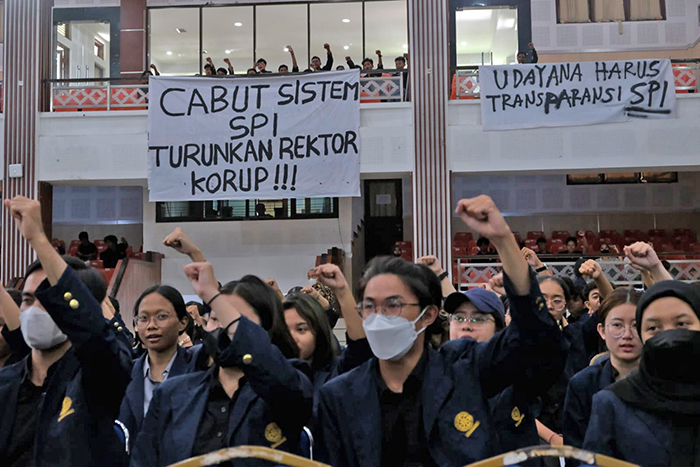 CABUT SISTEM
SPI
TURUNKAN REKTOR
KORUP !!!
UDAYANA HARUS
TRANSPARANSI SPI